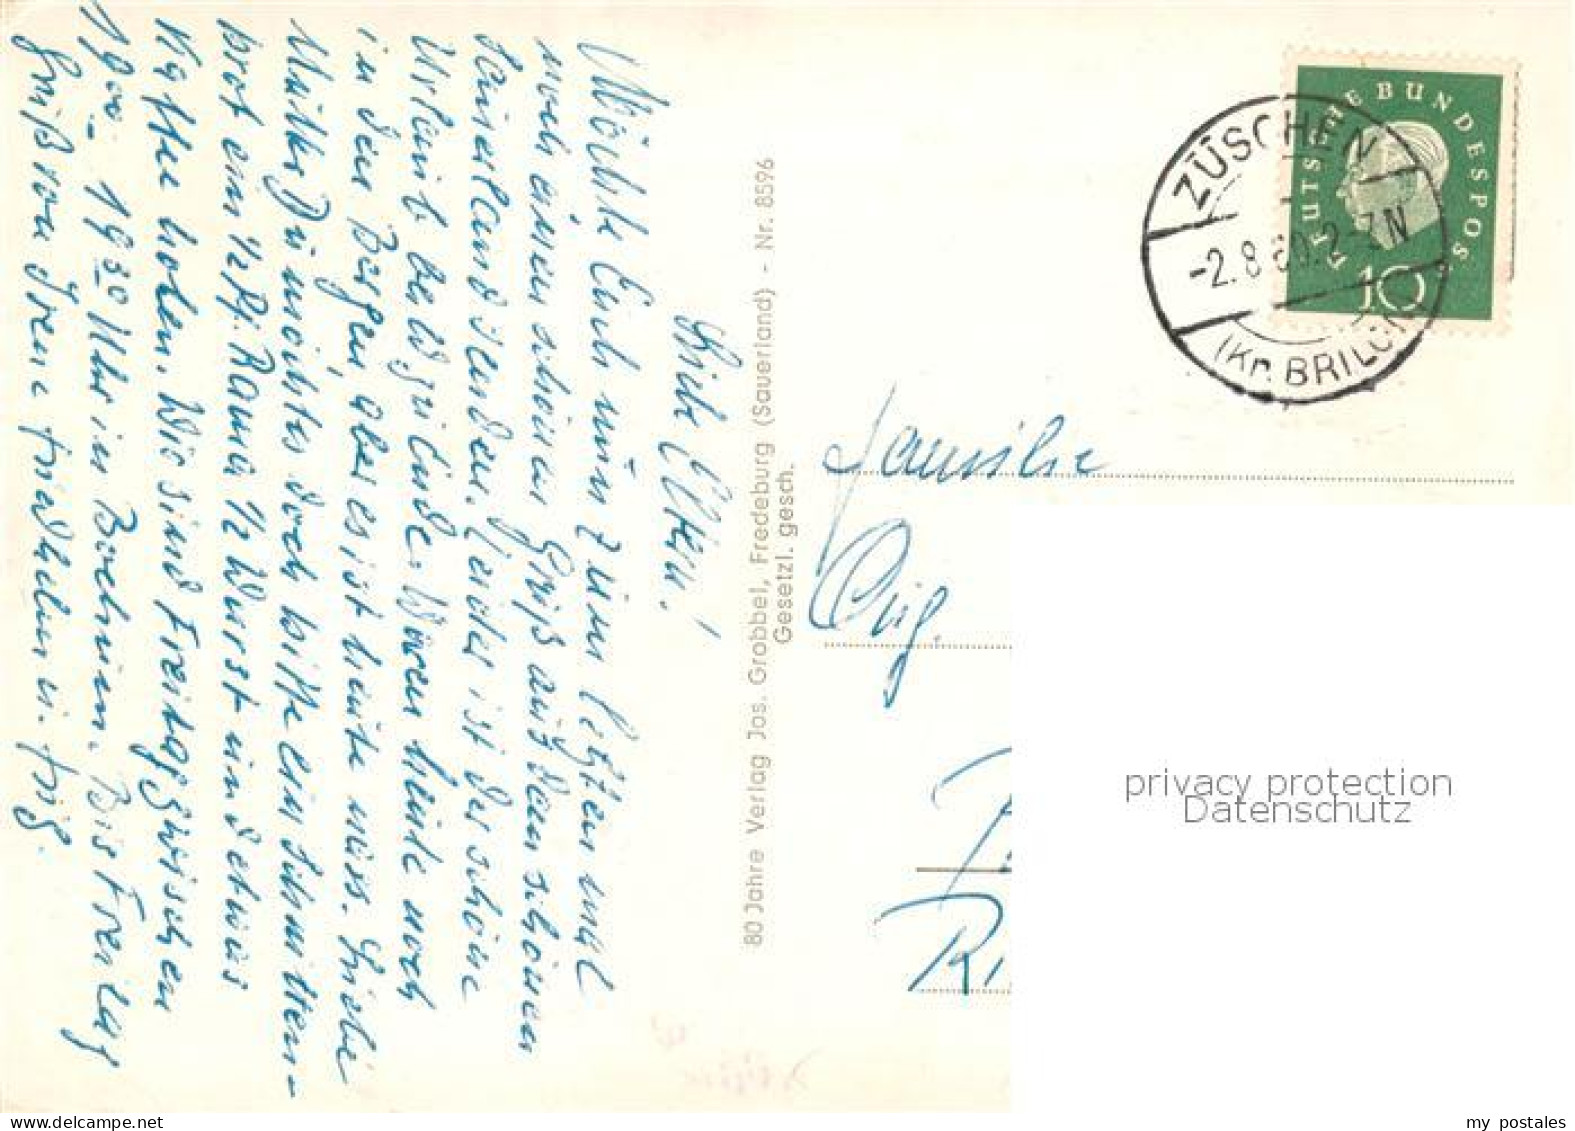 Liebe Eltern!
Möchte Euch nun zum letzten mal
noch einen schönen Gruß aus dem schönen
Sauerland senden. Leider ist der schöne
Urlaub bald zu Ende. Waren heute noch
in den Bergen, aber es ist heute nass. Liebe
Mutter Du möchtes doch bitte ein Schnitten-
brot ein 1/2 Pf. Rama 1/2 Wurst und etwas
holen. Wir sind Freitag zwischen
19oo - 19 30 Uhr in Bochum. Bis Freitag
Gruß von Irene Friedhelm u.
80 Jahre Verlag Jos. Grobbel, Fredeburg (Sauerland) - Nr. 8596
Gesetzl. gesch.
DEUTSCHE BUNDESPOST
10
ZÜSCHEN
-2.8.60. 2-3N
(Kr. BRILON)
Familie
privacy protection
Datenschutz
my postales